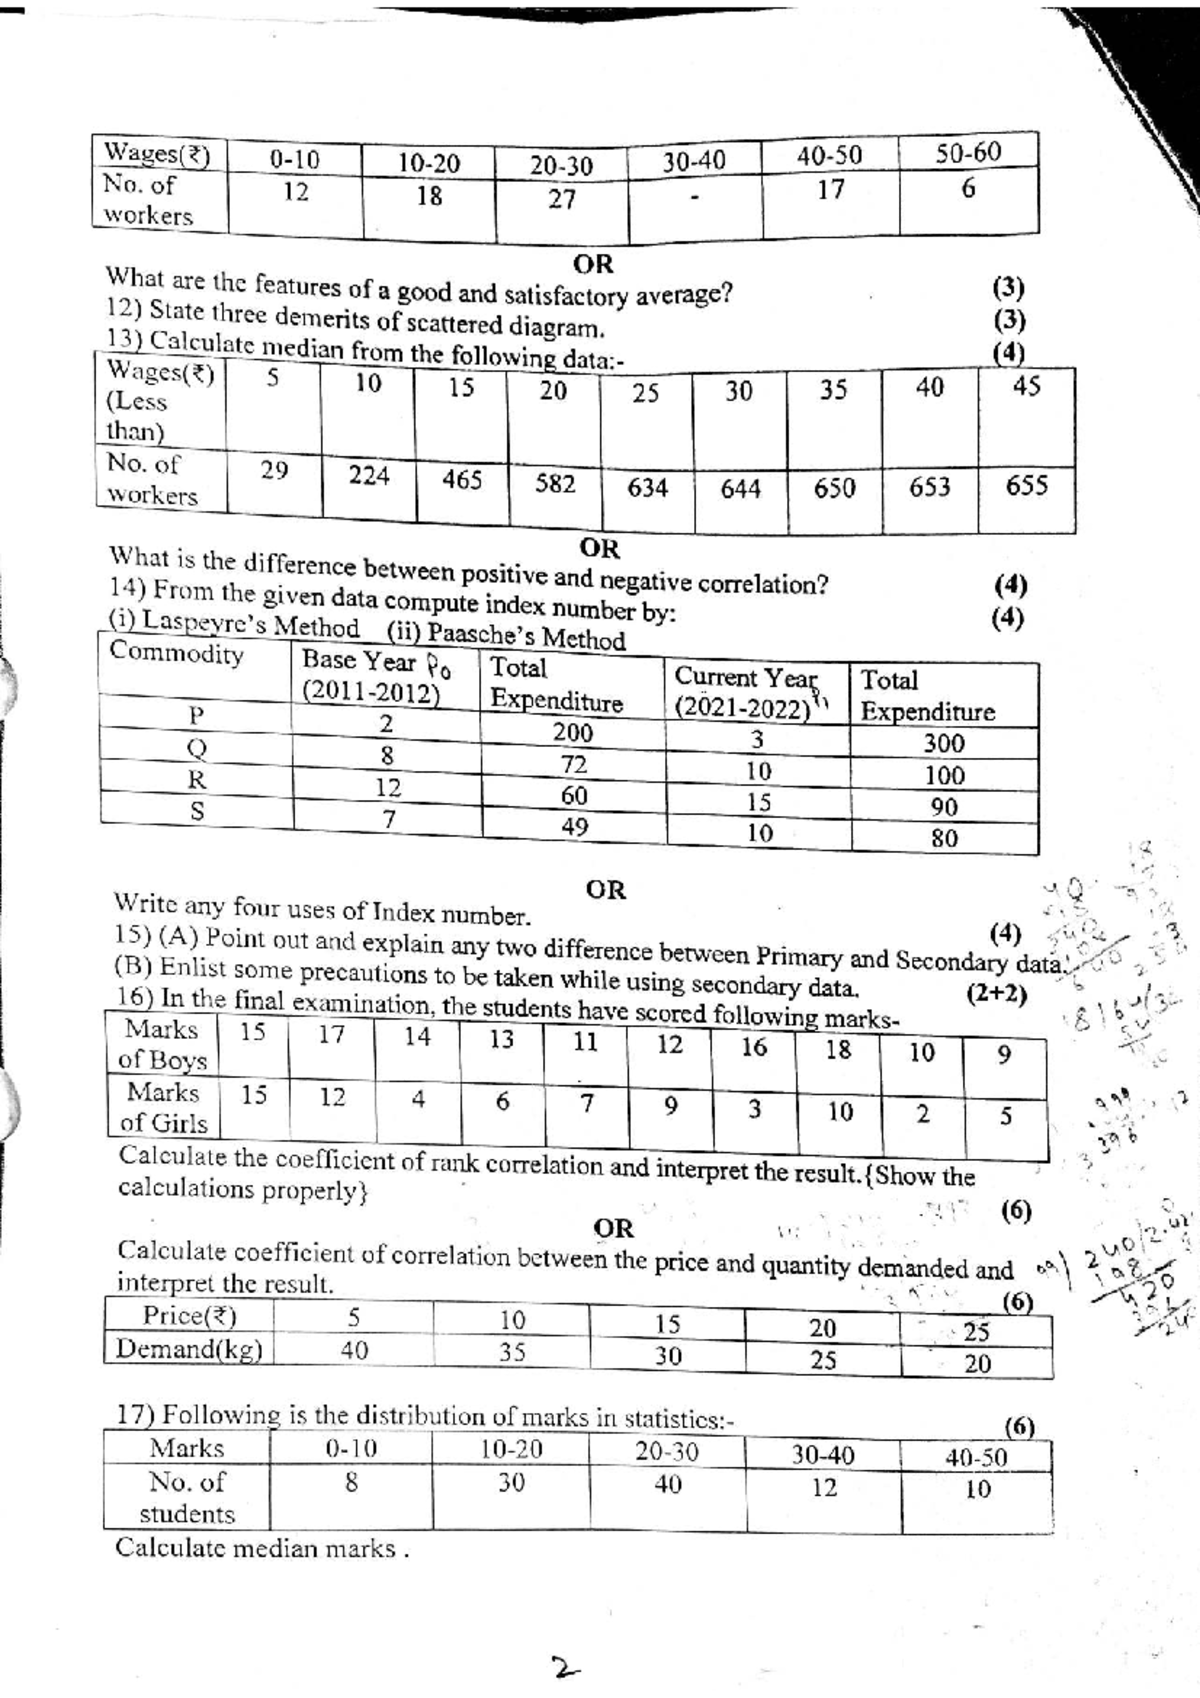 Wages(₹) 0-10 10-20 20-30 30-40 40-50 50-60
No. of workers 12 18 27 - 17 6
OR
What are the features of a good and satisfactory average? (3)
12) State three demerits of scattered diagram. (3)
13) Calculate median from the following data:- (4)
Wages(₹) (Less than) 5 10 15 20 25 30 35 40 45
No. of workers 29 224 465 582 634 644 650 653 655
OR
What is the difference between positive and negative correlation? (4)
14) From the given data compute index number by: (4)
(i) Laspeyre's Method (ii) Paasche's Method
Commodity Base Year P0 (2011-2012) Total Expenditure Current Year P1 (2021-2022) Total Expenditure
P 2 200 3 300
Q 8 72 10 100
R 12 60 15 90
S 7 49 10 80
OR
Write any four uses of Index number. (4)
15) (A) Point out and explain any two difference between Primary and Secondary data.
(B) Enlist some precautions to be taken while using secondary data. (2+2)
16) In the final examination, the students have scored following marks-
Marks of Boys 15 17 14 13 11 12 16 18 10 9
Marks of Girls 15 12 4 6 7 9 3 10 2 5
Calculate the coefficient of rank correlation and interpret the result.{Show the
calculations properly} (6)
OR
Calculate coefficient of correlation between the price and quantity demanded and
interpret the result. (6)
Price(₹) 5 10 15 20 25
Demand(kg) 40 35 30 25 20
17) Following is the distribution of marks in statistics:- (6)
Marks 0-10 10-20 20-30 30-40 40-50
No. of students 8 30 40 12 10
Calculate median marks .
2